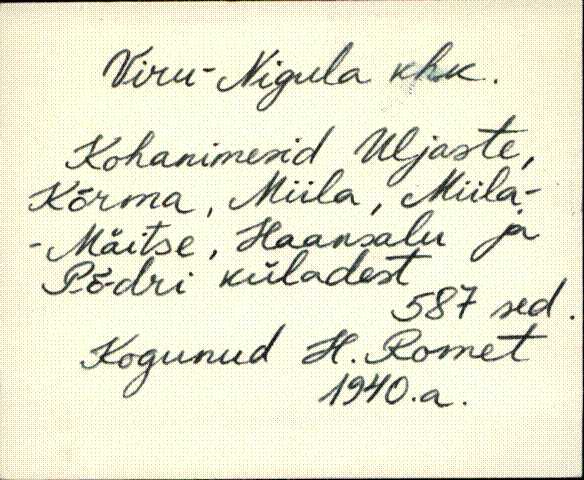 Viru-Nigula khk.
Kohanimesid Uljaste,
Kõrma, Miila, Miila-
-Mäitse, Haansalu ja
Põdri küladest
587 sed.
Kogunud H. Romet
1940.a.